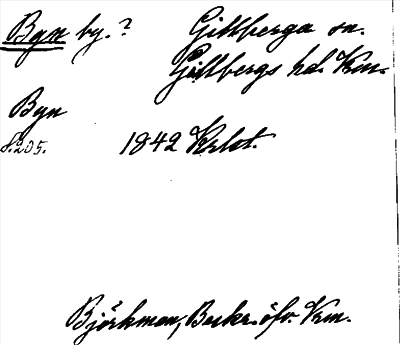 Byn by.? Gillberga sn.
Gillbergs hd. Vrm.
Byn
s.205. 1842 Krbt.
Björkman, Beskr. öfv. Vrm.